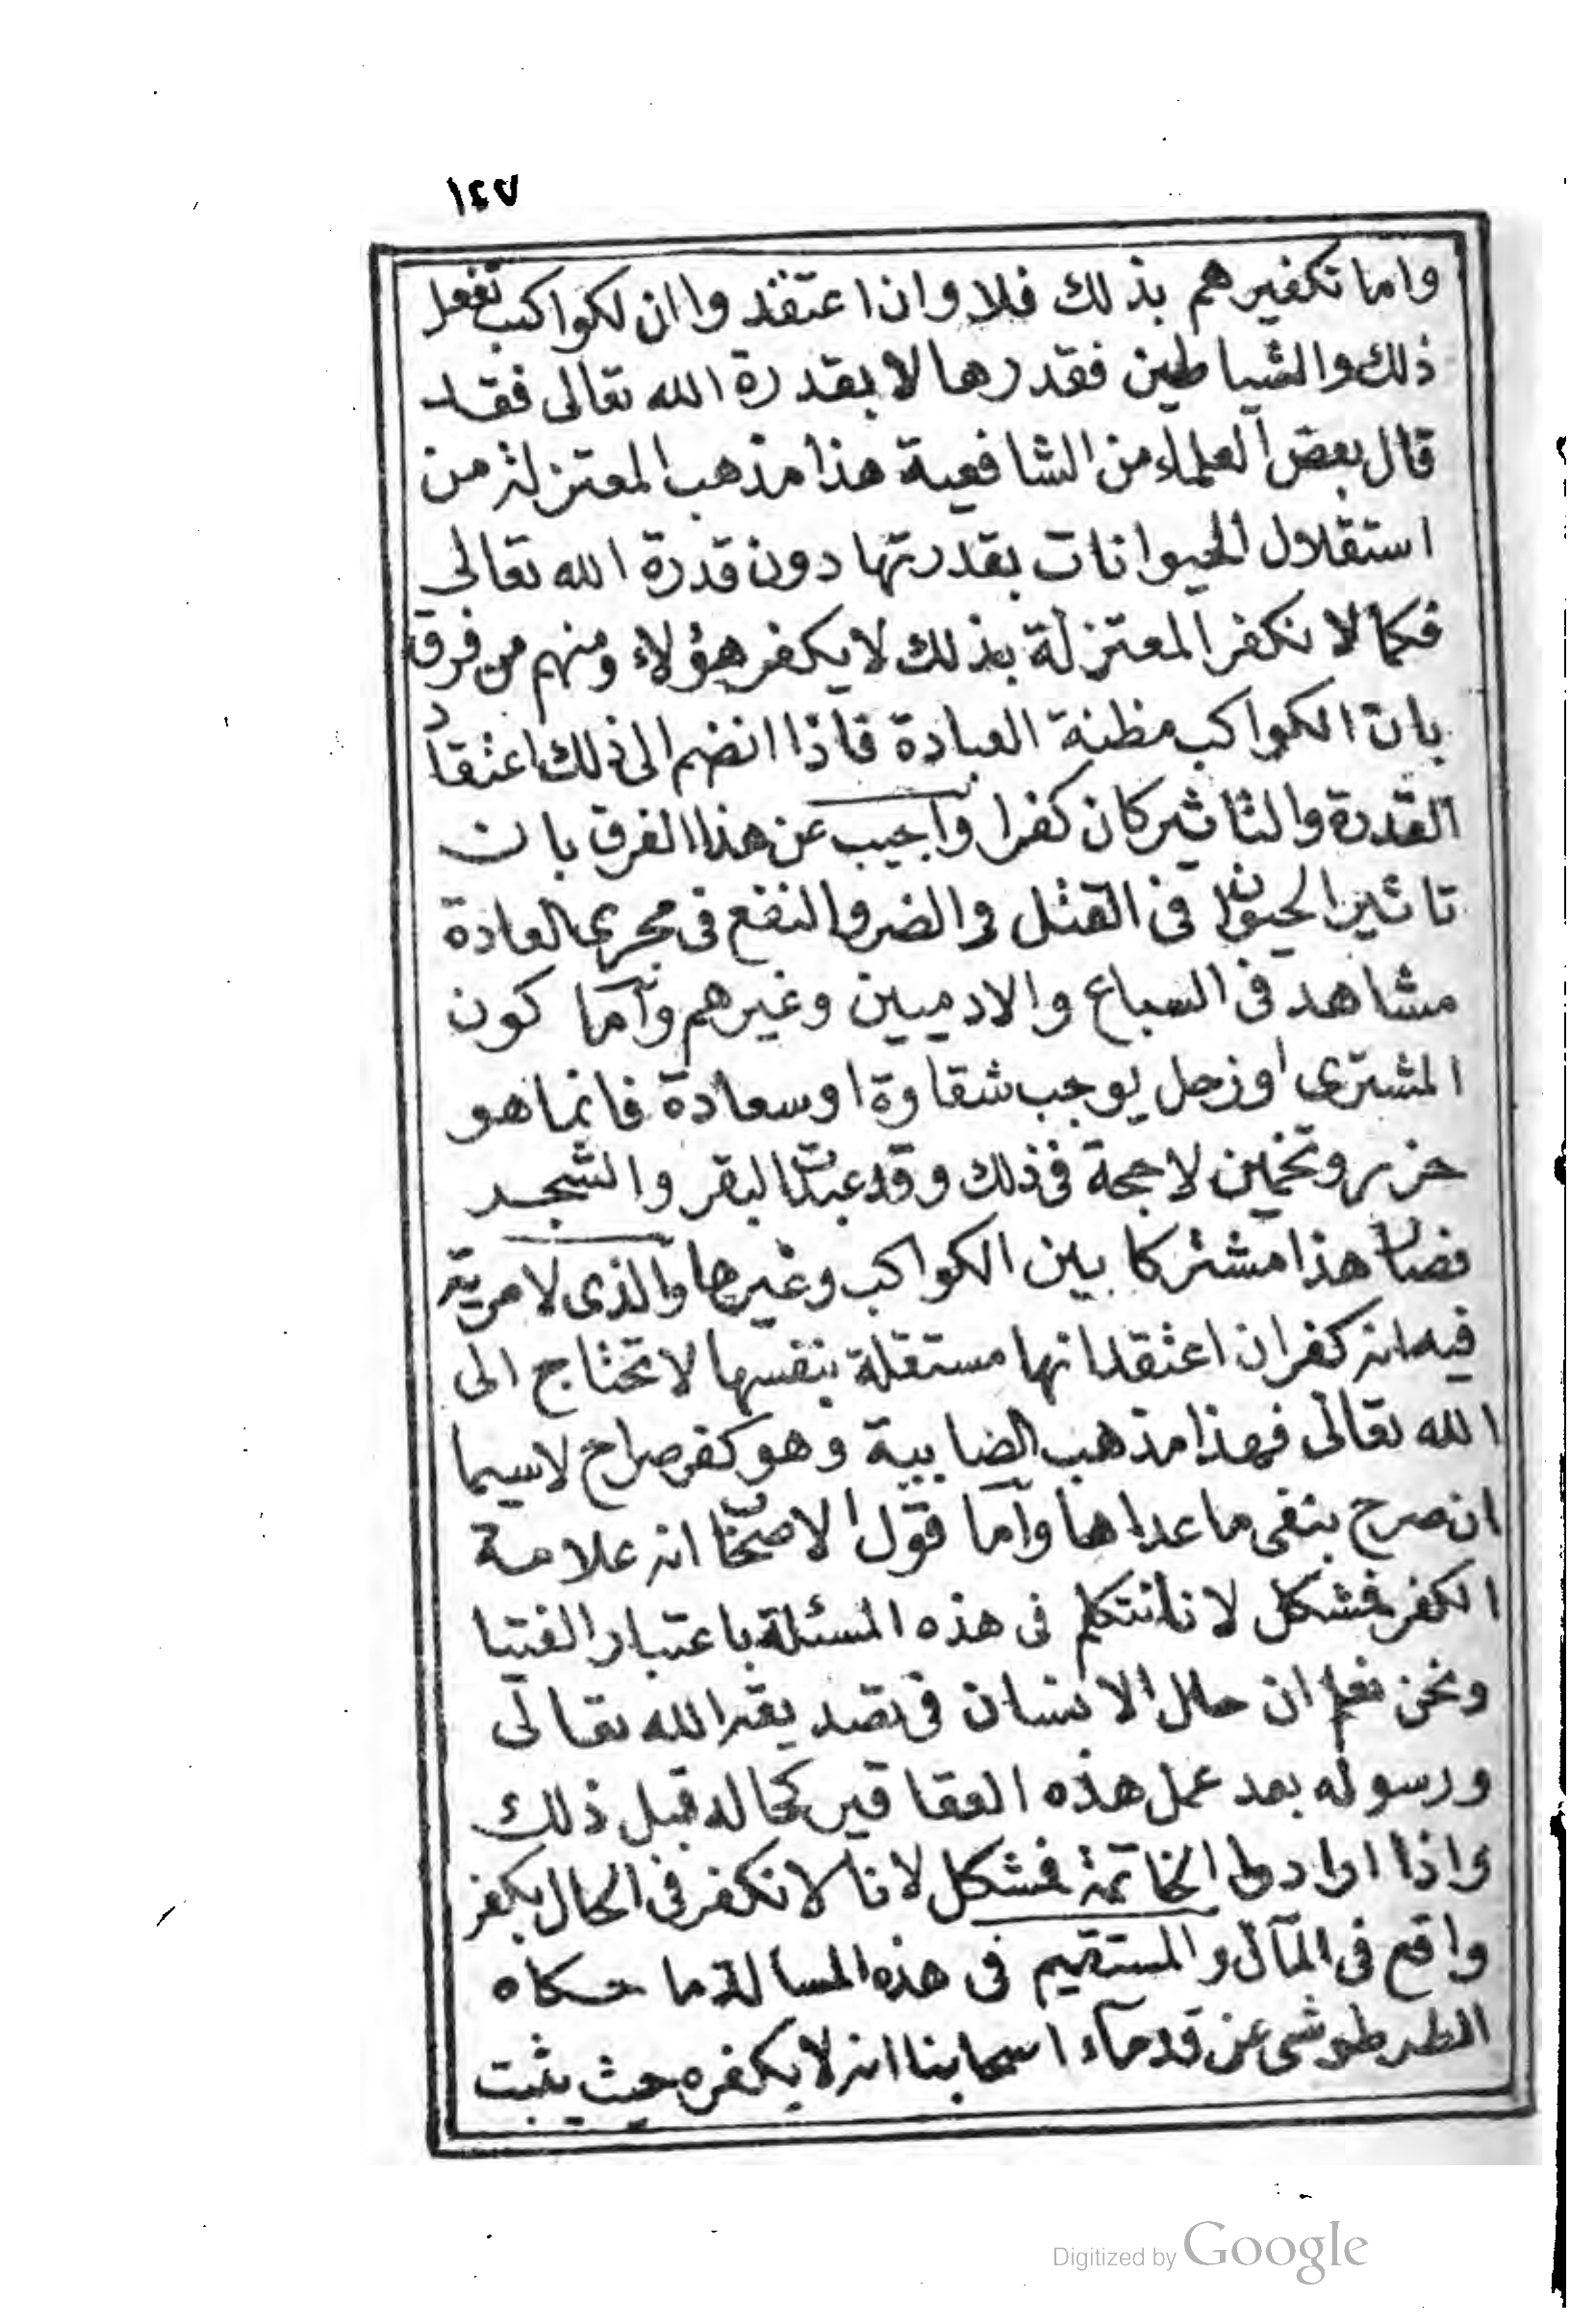 ١٤٧
واما تكفيرهم بذلك فلا وان اعتقدوا ان لكواكب تفعل
ذلك والشياطين فقدرها لا بقدرة الله تعالى فقد
قال بعض العلماء من الشافعية هذا مذهب المعتزلة من
استقلال الحيوانات بقدرتها دون قدرة الله تعالى
فكما لا نكفر المعتزلة بذلك لا يكفر هؤلاء ومنهم من فرق
بان الكواكب مظنة العبادة فاذا انضم الى ذلك اعتقاد
القدرة والتاثير كان كفرا واجيب عن هذا الفرق بان
تاثير الحيوان فى القتل والضر والنفع فى مجرى العادة
مشاهد فى السباع والادميين وغيرهم وأما كون
المشترى او زحل يوجب شقاوة او سعادة فانما هو
حزر وتخمين لا حجة فى ذلك وقد عبدت البقر والشجر
فصار هذا مشتركا بين الكواكب وغيرها والذى لا مرية
فيه انه كفر ان اعتقد انها مستقلة بنفسها لا تحتاج الى
الله تعالى فهذا مذهب الصابية وهو كفر صراح لاسيما
ان صرح بنفى ما عداها وأما قول الاصحاب انه علامة
الكفر فمشكل لانا نتكلم فى هذه المسئلة باعتبار الفتيا
ونحن نعلم ان حال الانسان فى تصديقه الله تعالى
ورسوله بعد عمل هذه العقاقير كحاله قبل ذلك
واذا ارادوا الخاتمة فمشكل لانا لا نكفر فى الحال بكفر
واقع فى المآل والمستقيم فى هذه المسالة ما حكاه
الطرطوشى عن قدمآء اصحابنا انه لا يكفره حيث يثبت
Digitized by Google